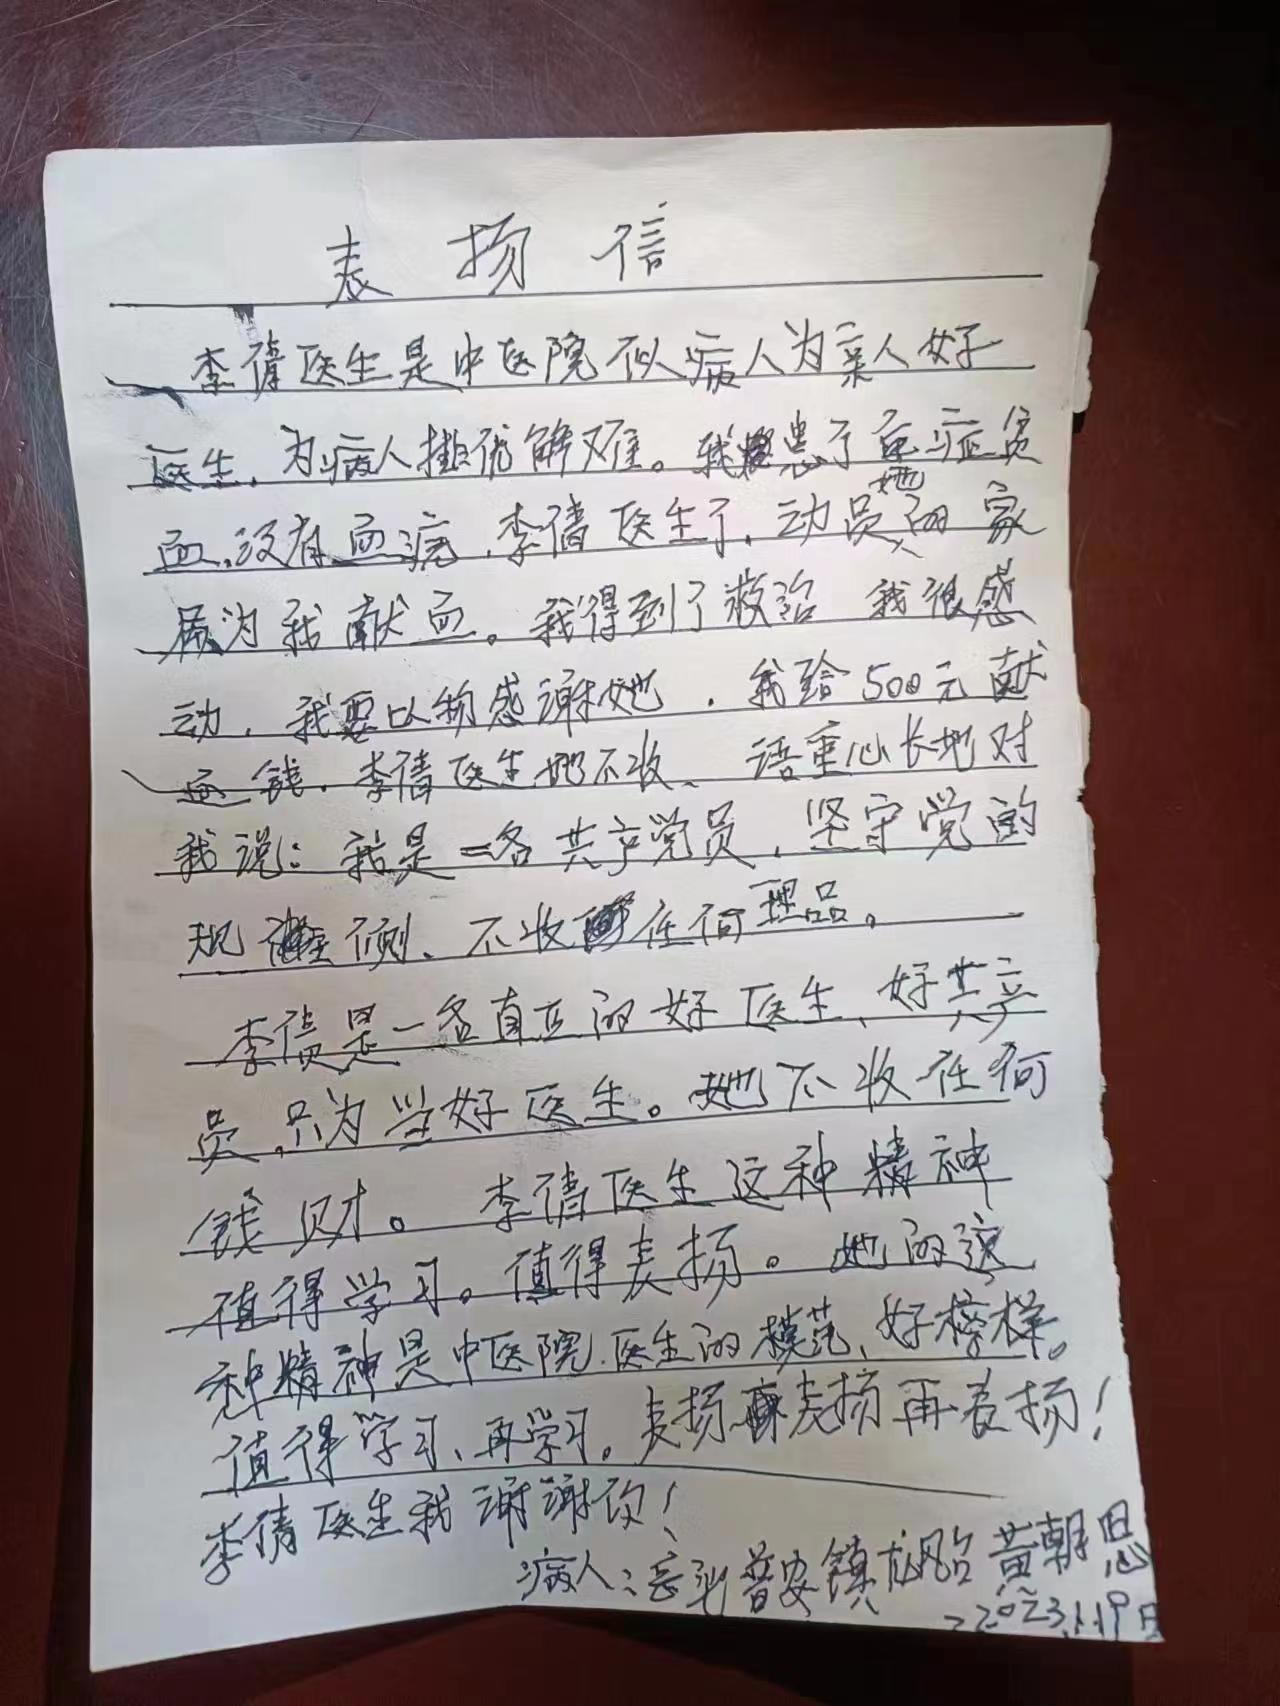 表扬信
李倩医生是中医院似病人为亲人好
医生,为病人排优解难。我患了重症贫
血,没有血源,李倩医生了,动员她的家
属为我献血。我得到了救治 我很感
动,我要以物感谢她,我给500元献
血钱,李倩医生她不收、语重心长地对
我说:我是一名共产党员,坚守党的
规 则、不收任何理品。
李倩是一名真正的好医生、好共产
员,只为当好医生。她不收任何
钱财。李倩医生这种精神
值得学习。值得表扬。她的这
种精神是中医院.医生的模范、好榜样。
值得学习、再学习。表扬表扬再表扬!
李倩医生我谢谢你!
病人:普安镇龙凤台黄朝恩
2023.1.19日